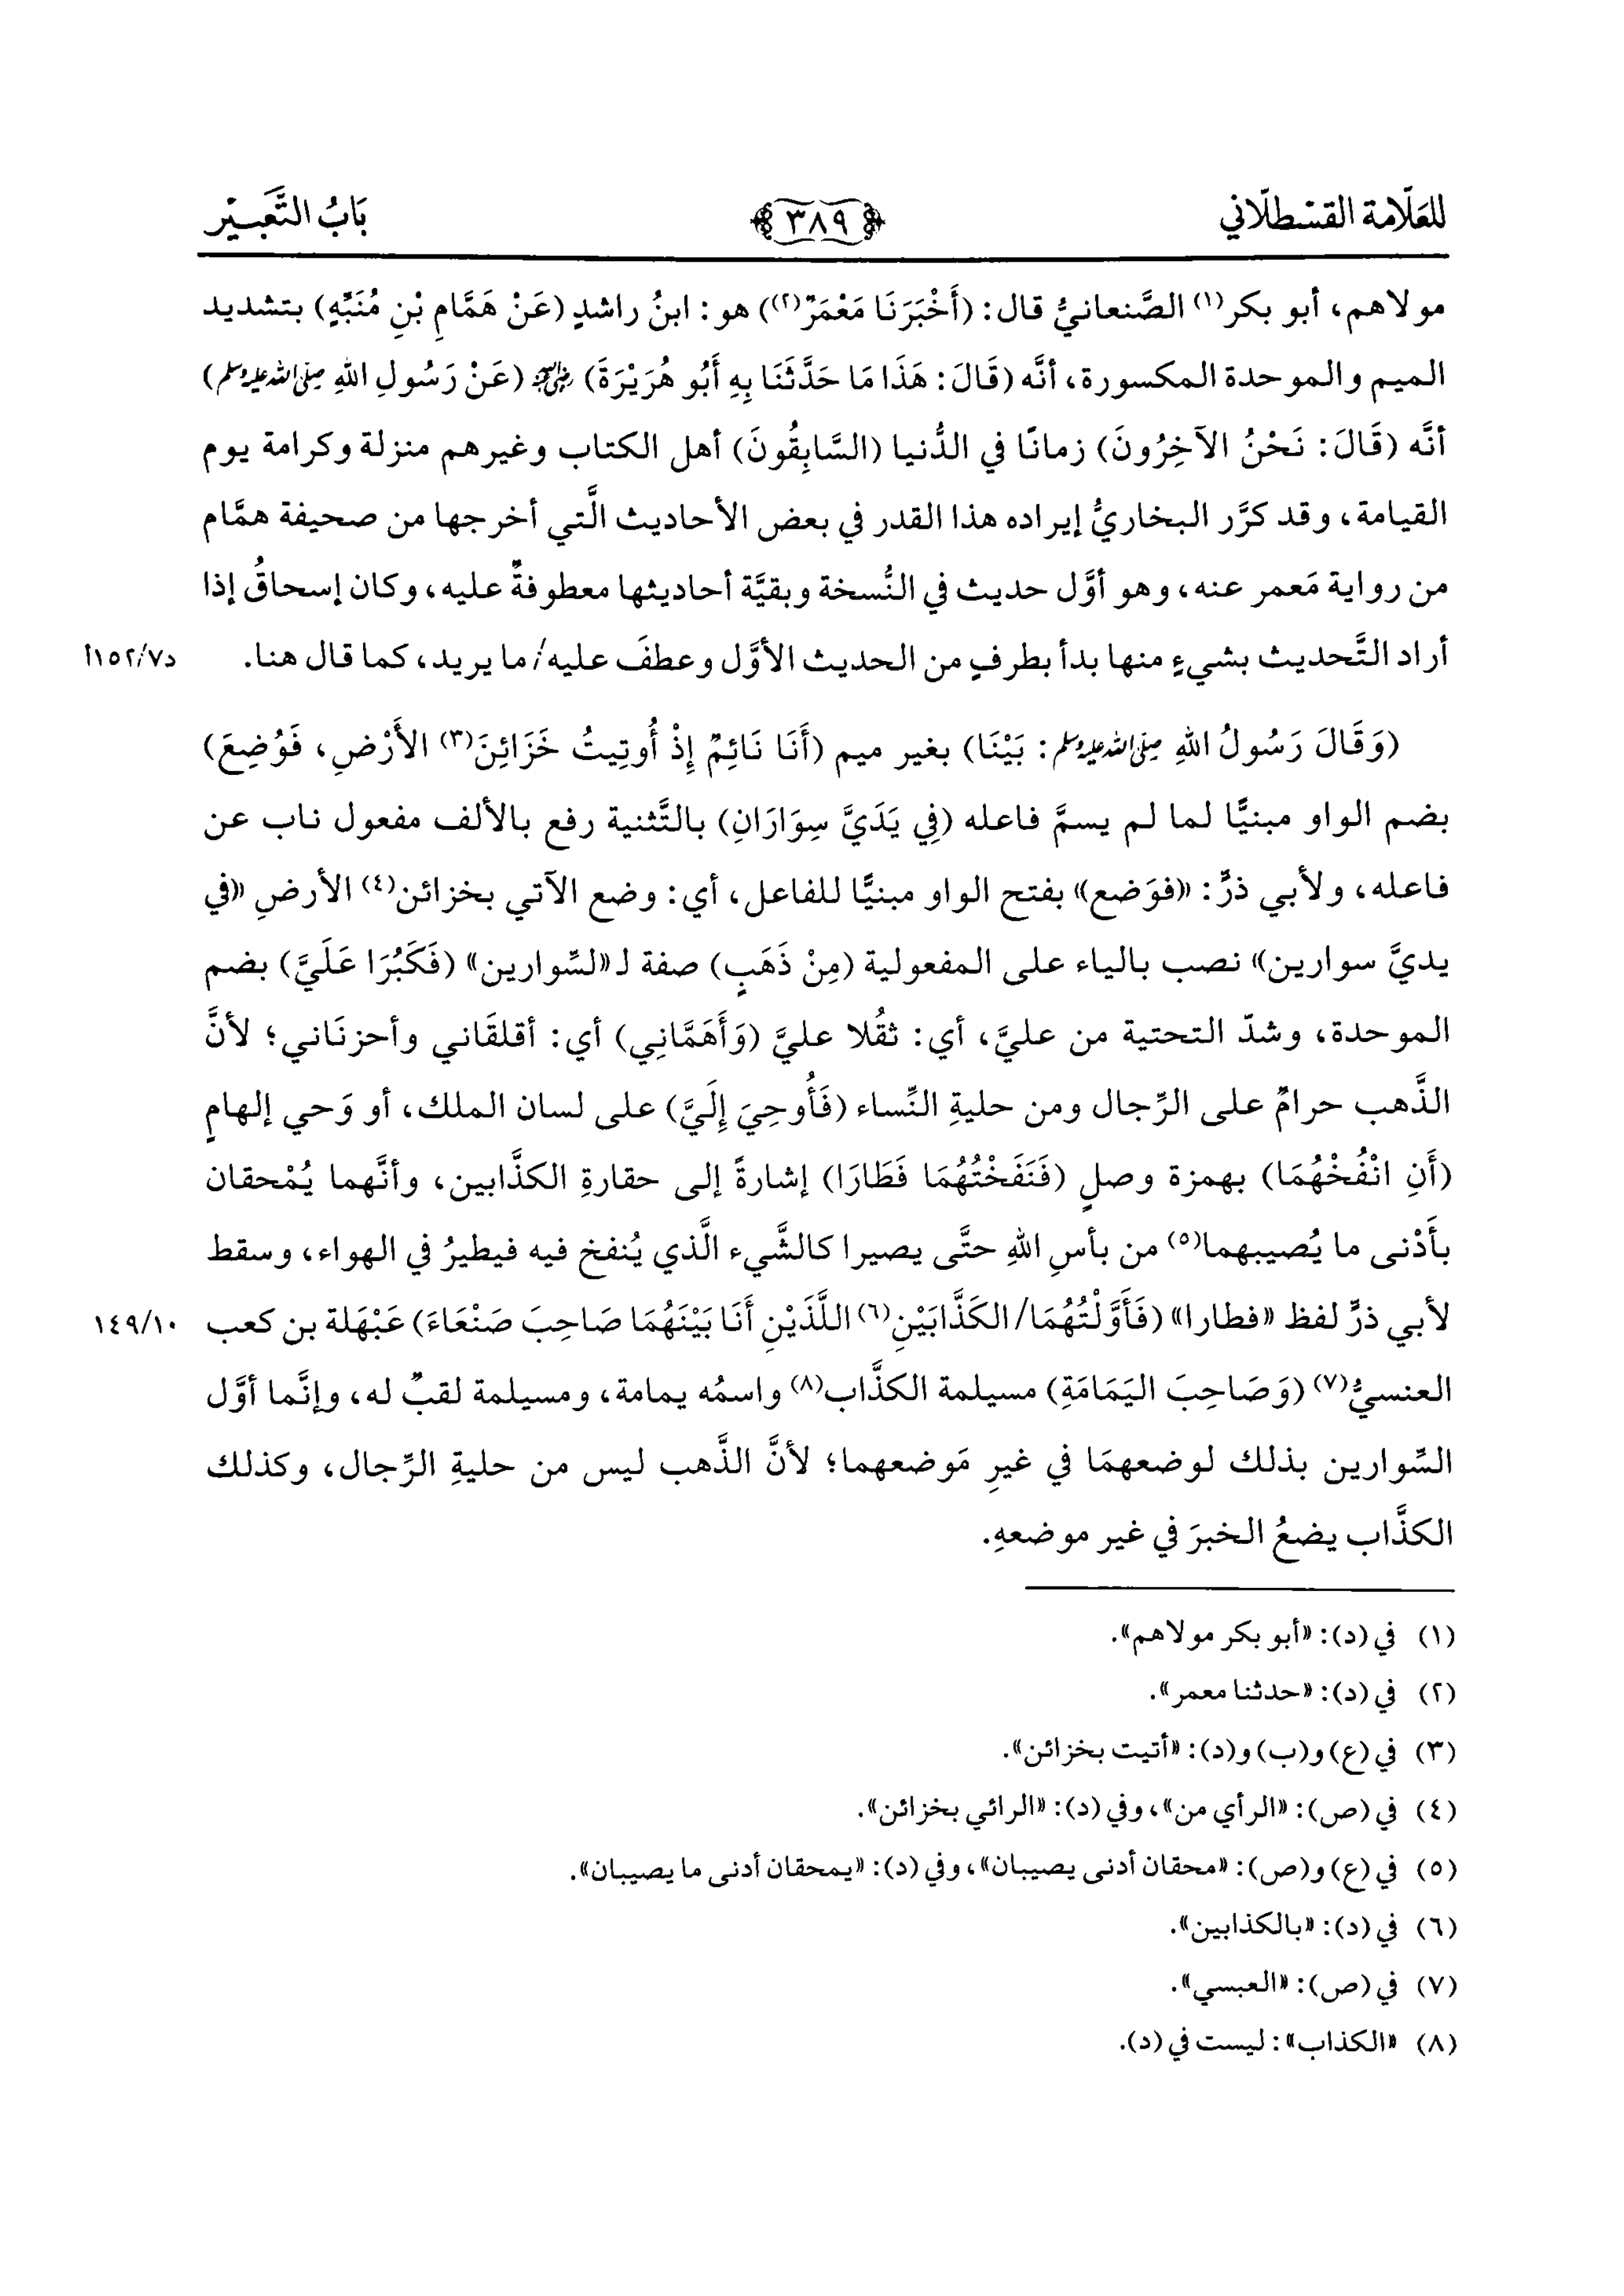 للعلّامة القسطلّاني ٣٨٩ بَابُ التَّعبير
مولاهم، أبو بكر(١) الصَّنعانيُّ قال: (أَخْبَرَنَا مَعْمَرٌ(٢)) هو: ابنُ راشدٍ (عَنْ هَمَّامِ بْنِ مُنَبِّهٍ) بتشديد
الميم والموحدة المكسورة، أنَّه (قَالَ: هَذَا مَا حَدَّثَنَا بِهِ أَبُو هُرَيْرَةَ) رضي الله عنه (عَنْ رَسُولِ اللهِ صلى الله عليه وسلم)
أنَّه (قَالَ: نَحْنُ الآخِرُونَ) زمانًا في الدُّنيا (السَّابِقُونَ) أهل الكتاب وغيرهم منزلة وكرامة يوم
القيامة، وقد كرَّر البخاريُّ إيراده هذا القدر في بعض الأحاديث الَّتي أخرجها من صحيفة همَّام
من رواية مَعمر عنه، وهو أوَّل حديث في النُّسخة وبقيَّة أحاديثها معطوفةٌ عليه، وكان إسحاقُ إذا
أراد التَّحديث بشيءٍ منها بدأ بطرفٍ من الحديث الأوَّل وعطفَ عليه/ ما يريد، كما قال هنا. د٧/١٥٢أ
(وَقَالَ رَسُولُ اللهِ صلى الله عليه وسلم: بَيْنَا) بغير ميم (أَنَا نَائِمٌ إِذْ أُوتِيتُ خَزَائِنَ(٣) الأَرْضِ، فَوُضِعَ)
بضم الواو مبنيًّا لما لم يسمَّ فاعله (فِي يَدَيَّ سِوَارَانِ) بالتَّثنية رفع بالألف مفعول ناب عن
فاعله، ولأبي ذرٍّ: «فوَضع» بفتح الواو مبنيًّا للفاعل، أي: وضع الآتي بخزائن(٤) الأرضِ «في
يديَّ سوارين» نصب بالياء على المفعولية (مِنْ ذَهَبٍ) صفة لـ«لسِّوارين» (فَكَبُرَا عَلَيَّ) بضم
الموحدة، وشدّ التحتية من عليَّ، أي: ثقُلا عليَّ (وَأَهَمَّانِي) أي: أقلقَاني وأحزنَاني؛ لأنَّ
الذَّهب حرامٌ على الرِّجال ومن حليةِ النِّساء (فَأُوحِيَ إِلَيَّ) على لسان الملك، أو وَحي إلهامٍ
(أَنِ انْفُخْهُمَا) بهمزة وصلٍ (فَنَفَخْتُهُمَا فَطَارَا) إشارةً إلى حقارةِ الكذَّابين، وأنَّهما يُمْحقان
بأَدْنى ما يُصيبهما(٥) من بأسِ اللهِ حتَّى يصيرا كالشَّيء الَّذي يُنفخ فيه فيطيرُ في الهواء، وسقط
لأبي ذرٍّ لفظ «فطارا» (فَأَوَّلْتُهُمَا/ الكَذَّابَيْنِ(٦) اللَّذَيْنِ أَنَا بَيْنَهُمَا صَاحِبَ صَنْعَاءَ) عَبْهَلة بن كعب ١٤٩/١٠
العنسيُّ(٧) (وَصَاحِبَ اليَمَامَةِ) مسيلمة الكذَّاب(٨) واسمُه يمامة، ومسيلمة لقبٌ له، وإنَّما أوَّل
السِّوارين بذلك لوضعهمَا في غيرِ مَوضعهما؛ لأنَّ الذَّهب ليس من حليةِ الرِّجال، وكذلك
الكذَّاب يضعُ الخبرَ في غير موضعهِ.
(١) في (د): «أبو بكر مولاهم».
(٢) في (د): «حدثنا معمر».
(٣) في (ع) و(ب) و(د): «أتيت بخزائن».
(٤) في (ص): «الرأي من»، وفي (د): «الرائي بخزائن».
(٥) في (ع) و(ص): «محقان أدنى يصيبان»، وفي (د): «يمحقان أدنى ما يصيبان».
(٦) في (د): «بالكذابين».
(٧) في (ص): «العبسي».
(٨) «الكذاب»: ليست في (د).